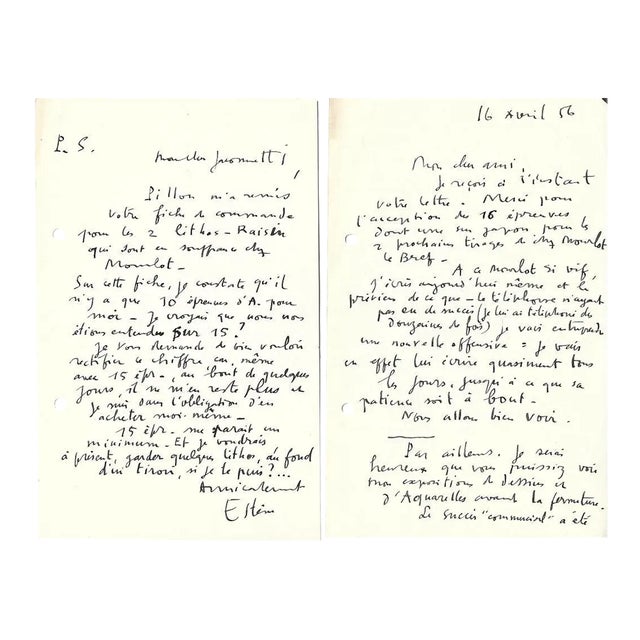 P. S.
mon cher Gromelli,
Pillon m'a remis
votre fiche de commande
pour les 2 lithos - Raisin
qui sont en souffrance chez
Mourlot -
Sur cette fiche, je constate qu'il
n'y a que 10 épreuves d'A. pour
moi - Je croyais que nous nous
étions entendus sur 15 ?
Je vous demande de bien vouloir
rectifier ce chiffre car, même
avec 15 épr -, au bout de quelques
jours, il ne m'en reste plus et
je suis dans l'obligation d'en
acheter moi-même -
15 épr - me paraît un
minimum - Et je voudrais
à présent, garder quelques lithos, au fond
d'un tiroir, si je le puis ?...
Amicalement
Estève
16 Avril 56
Mon cher ami,
Je reçois à l'instant
votre lettre - Merci pour
l'acception des 16 épreuves
dont une sur japon, pour les
2 prochains tirages de chez Mourlot
le Bref -
A ce Mourlot si vif,
j'écris aujourd'hui même et le
préviens de ce que - le téléphone n'ayant
pas eu de succès (je lui ai téléphoné des
douzaines de fois) je vais entreprendre
une nouvelle offensive : je vais
en effet lui écrire quasiment tous
les jours, jusqu'à ce que sa
patience soit à bout -
Nous allons bien voir.
Par ailleurs. Je serai
heureux que vous puissiez voir
mon expositions de dessins et
d'Aquarelles avant la fermeture.
Le succès "commercial" a été